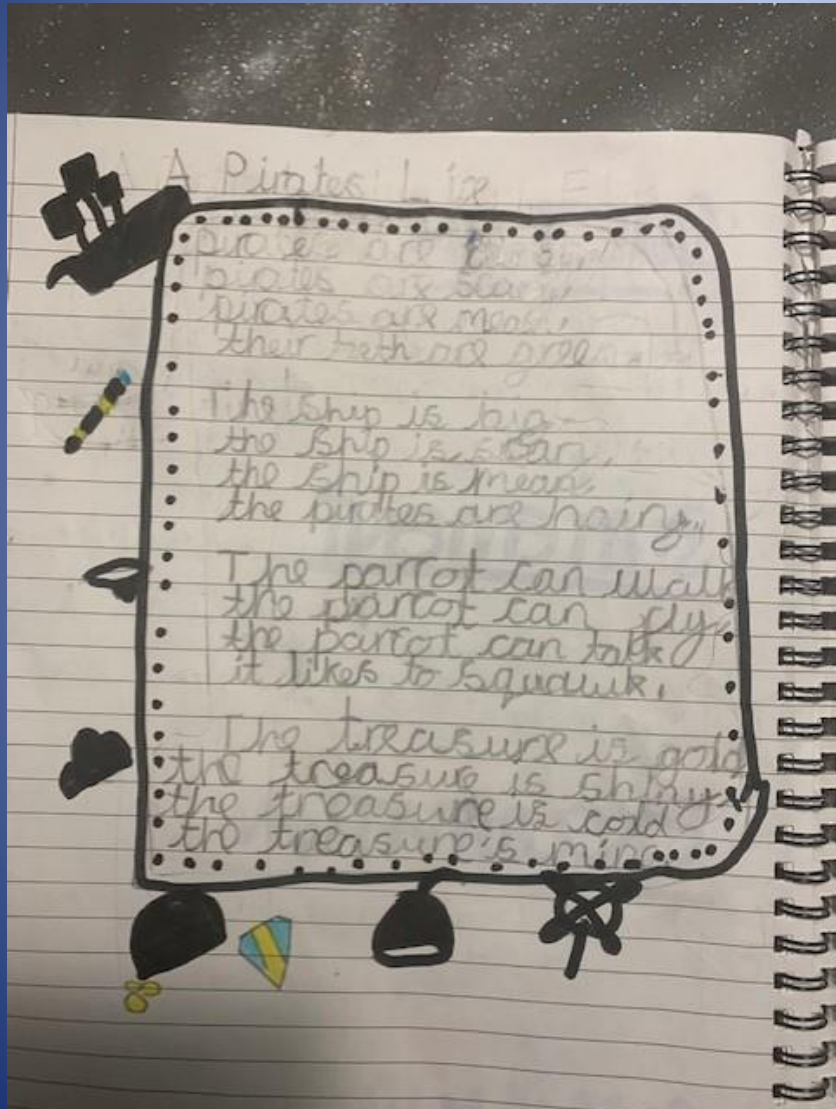 A Pirates Life
pirates are
pirates are scary,
pirates are mean,
their teeth are green
The ship is big
the ship is scary,
the ship is mean,
the pirates are hairy,
The parrot can walk
the parrot can fly,
the parrot can talk
it likes to squawk.
The treasure is gold
the treasure is shiny,
the treasure is cold
the treasure's mine